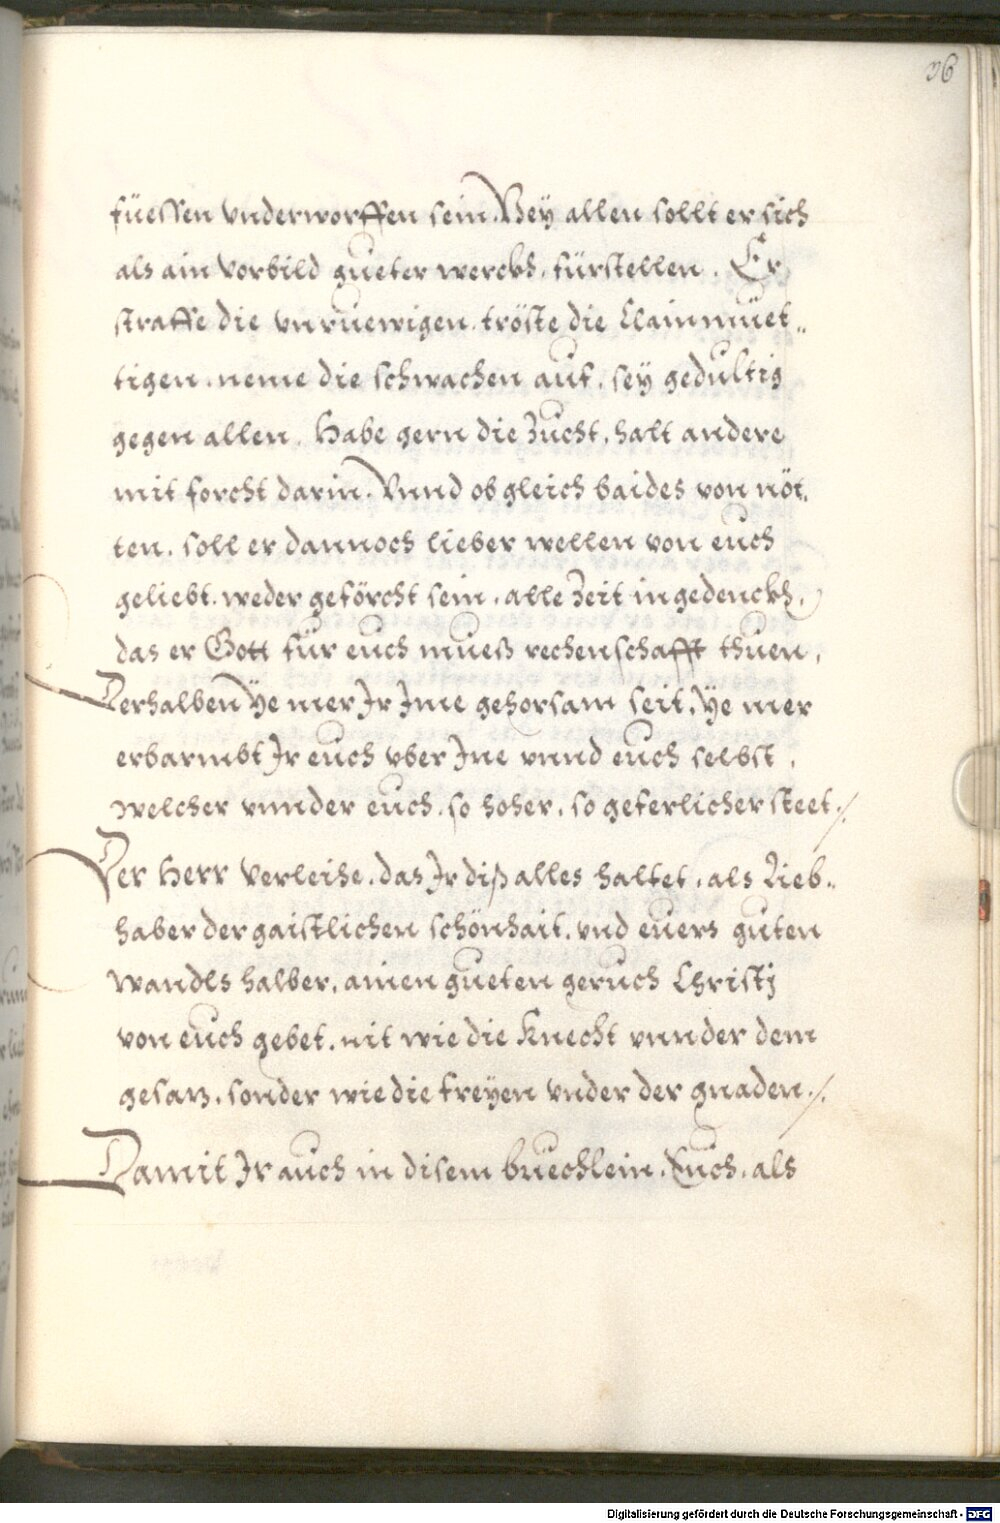 36
füessen vnderworffen sein. Bey allen sollt er sich
als ain vorbild gueter werckh, fürstellen. Er
straffe die vnruewigen, tröste die Clainmüet„
tigen, neme die schwachen auf, sey gedultig
gegen allen. Habe gern die Zucht, halt andere
mit forcht darin. Vnnd ob gleich baides von nöt„
ten, soll er dannoch lieber wellen von euch
geliebt, weder geförcht sein, alle Zeit ingedenckh,
das er Gott für euch mueß rechenschafft thuen,
Derhalben ye mer Ir Ime gehorsam seit, ye mer
erbarmbt Ir euch vber Ine vnnd euch selbst,
welcher vnnder euch, so hoher, so geferlicher steet ./.
Der Herr verleihe, das Ir diß alles haltet, als Lieb„
haber der gaistlichen schönhait, vnd euers guten
wandls halber, ainen gueten geruch Christj
von euch gebet, nit wie die Knecht vnnder dem
gesatz, sonder wie die freyen vnder der gnaden ./.
Damit Ir auch in disem buechlein, Euch, als
Digitalisierung gefördert durch die Deutsche Forschungsgemeinschaft - DFG